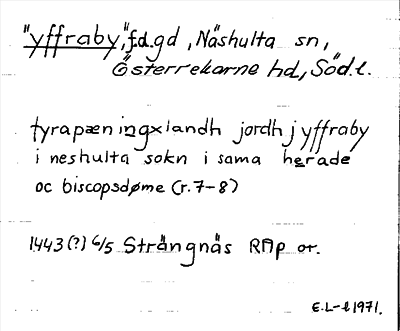 "yffraby," f.d. gd, Näshulta sn,
Österrekarne hd, Söd.l.
fyrapæningxlandh jordh j yffraby
i neshulta sokn i sama herade
oc biscopsdøme (r. 7-8)
1443(?) 6/5 Strängnäs RAp or.
E.L-l 1971.